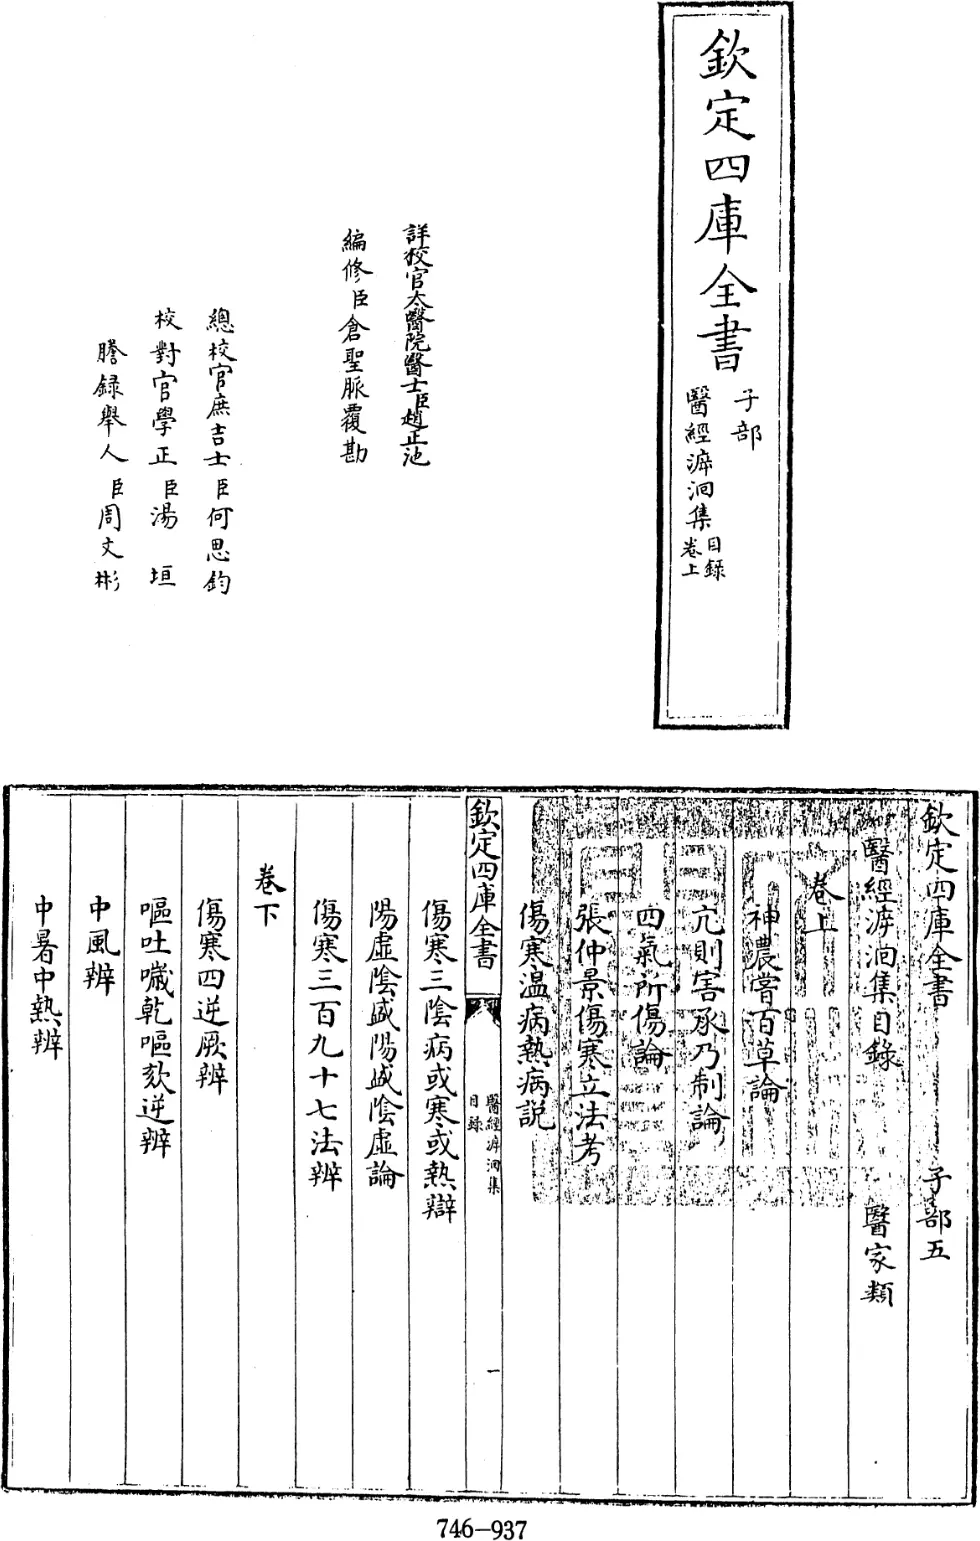 欽定四庫全書
子部
醫經溯洄集
目録
卷上
詳校官太醫院醫士臣趙正池
編修臣倉聖脈覆勘
總校官庶吉士臣何思鈞
校對官學正臣湯垣
謄録舉人臣周文彬
欽定四庫全書 子部五
醫經溯洄集目錄 醫家類
卷上
神農嘗百草論
亢則害承乃制論
四氣所傷論
張仲景傷寒立法考
傷寒温病熱病説
欽定四庫全書
醫經溯洄集
目録
一
傷寒三陰病或寒或熱辯
陽虛陰盛陽盛陰虛論
傷寒三百九十七法辨
卷下
傷寒四逆厥辨
嘔吐噦乾嘔欬逆辨
中風辨
中暑中熱辨
746-937